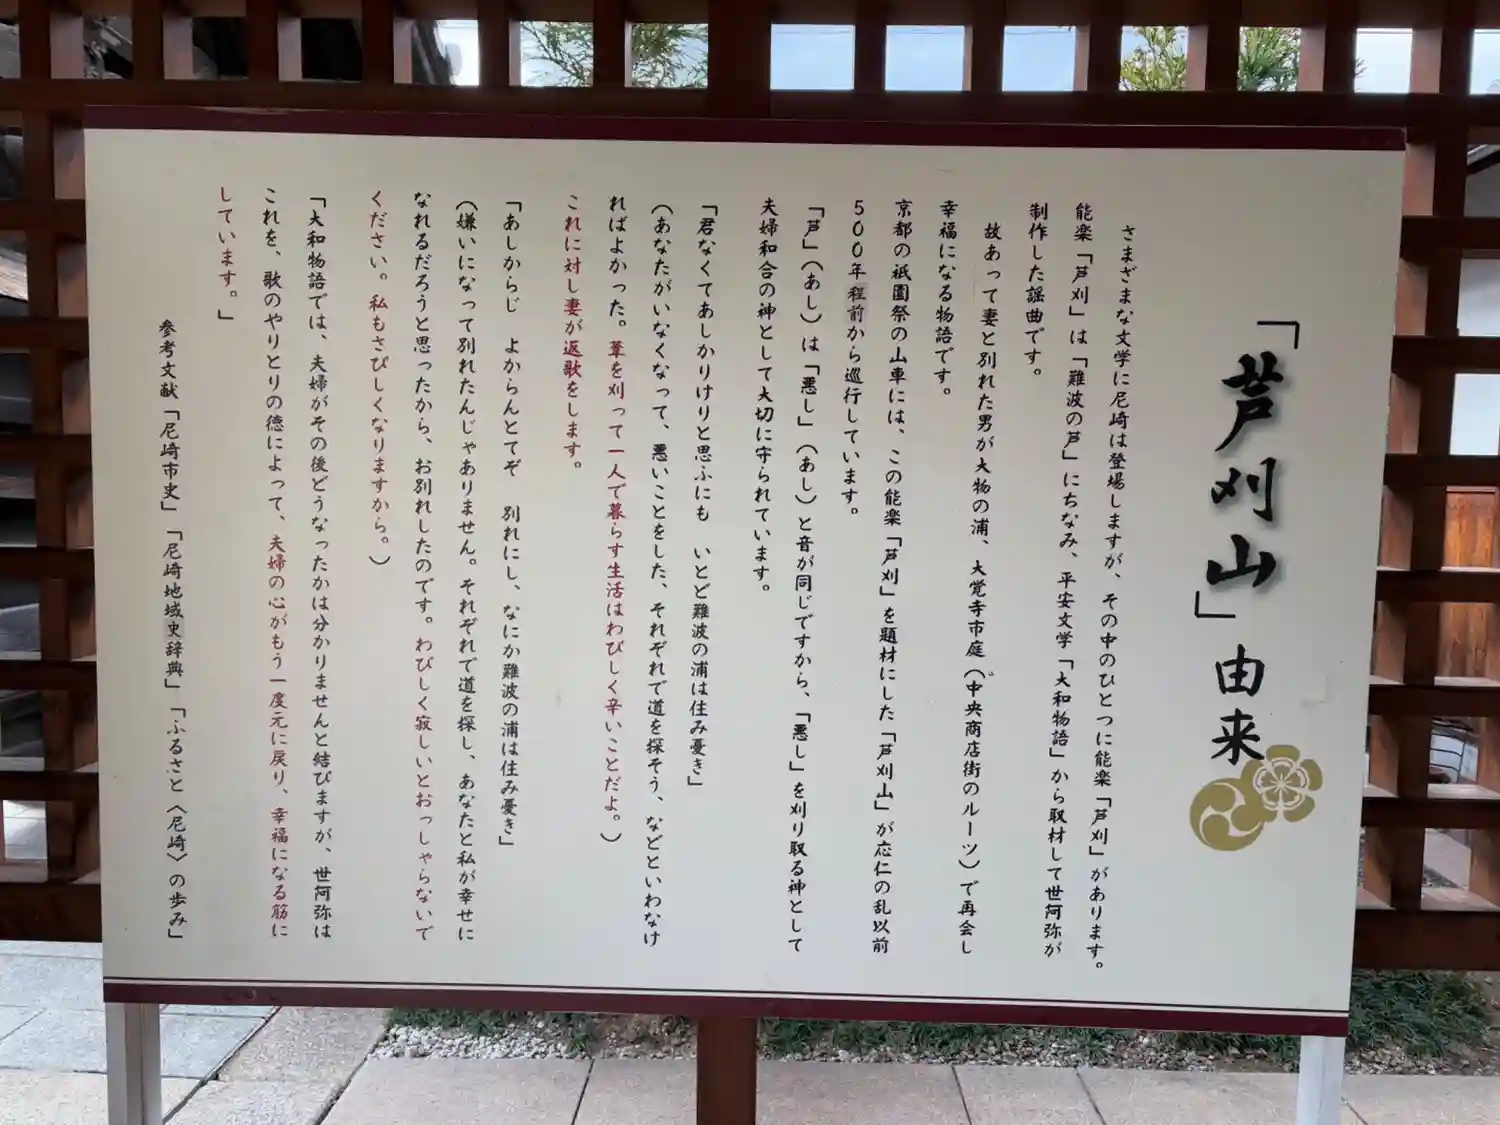 「芦刈山」由来
さまざまな文学に尼崎は登場しますが、その中のひとつに能楽「芦刈」があります。
能楽「芦刈」は「難波の芦」にちなみ、平安文学「大和物語」から取材して世阿弥が
制作した謡曲です。
故あって妻と別れた男が大物の浦、大覚寺市庭(中央商店街のルーツ)で再会し
幸福になる物語です。
京都の祇園祭の山車には、この能楽「芦刈」を題材にした「芦刈山」が応仁の乱以前
500年程前から巡行しています。
「芦」(あし)は「悪し」(あし)と音が同じですから、「悪し」を刈り取る神として
夫婦和合の神として大切に守られています。
「君なくてあしかりけりと思ふにも　いとど難波の浦は住み憂き」
(あなたがいなくなって、悪いことをした、それぞれで道を探そう、などといわなけ
ればよかった。葦を刈って一人で暮らす生活はわびしく辛いことだよ。)
これに対し妻が返歌をします。
「あしからじ　よからんとてぞ　別れにし、なにか難波の浦は住み憂き」
(嫌いになって別れたんじゃありません。それぞれで道を探し、あなたと私が幸せに
なれるだろうと思ったから、お別れしたのです。わびしく寂しいとおっしゃらないで
ください。私もさびしくなりますから。)
「大和物語では、夫婦がその後どうなったかは分かりませんと結びますが、世阿弥は
これを、歌のやりとりの徳によって、夫婦の心がもう一度元に戻り、幸福になる筋に
しています。」
参考文献「尼崎市史」「尼崎地域史辞典」「ふるさと〈尼崎〉の歩み」